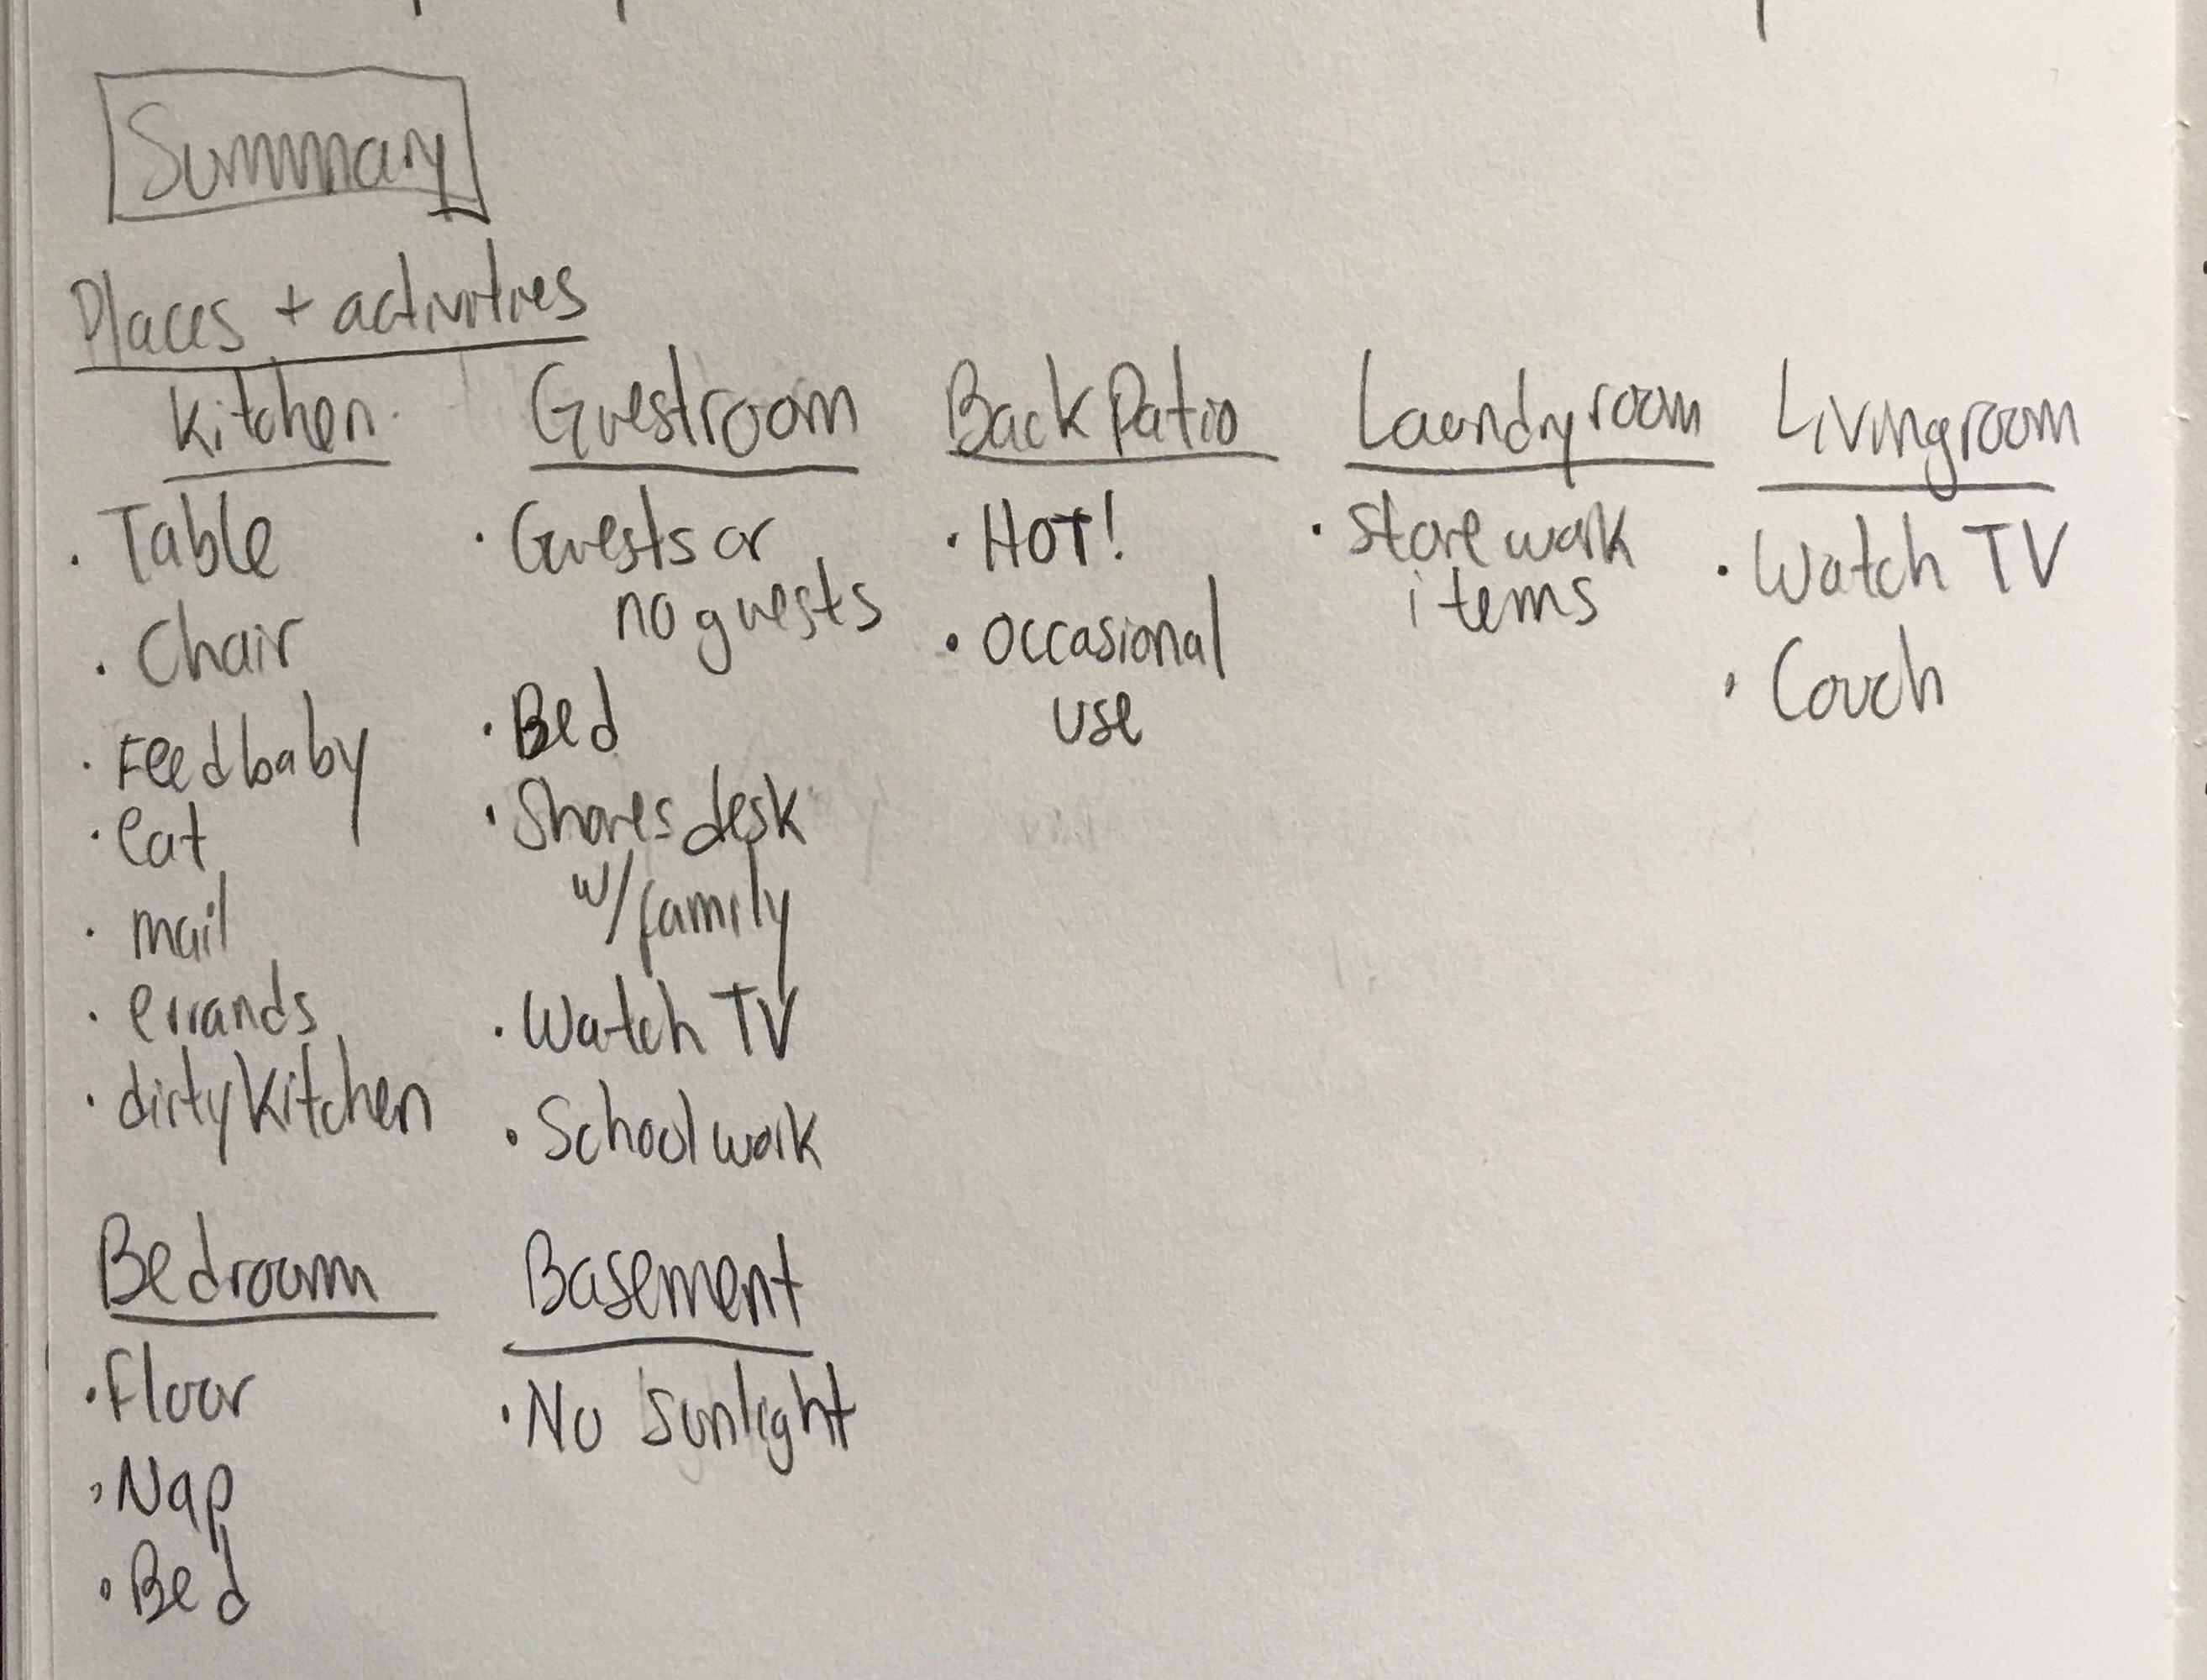 Summary
Places + activities
Kitchen
Table
Chair
Feed baby
eat
mail
errands
dirty kitchen
Guestroom
Guests or
no guests
Bed
Shares desk
w/ family
Watch TV
School work
Back Patio
HOT!
Occasional
use
Laundry room
Store work
items
Livingroom
Watch TV
Couch
Bedroom
Floor
Nap
Bed
Basement
No sunlight